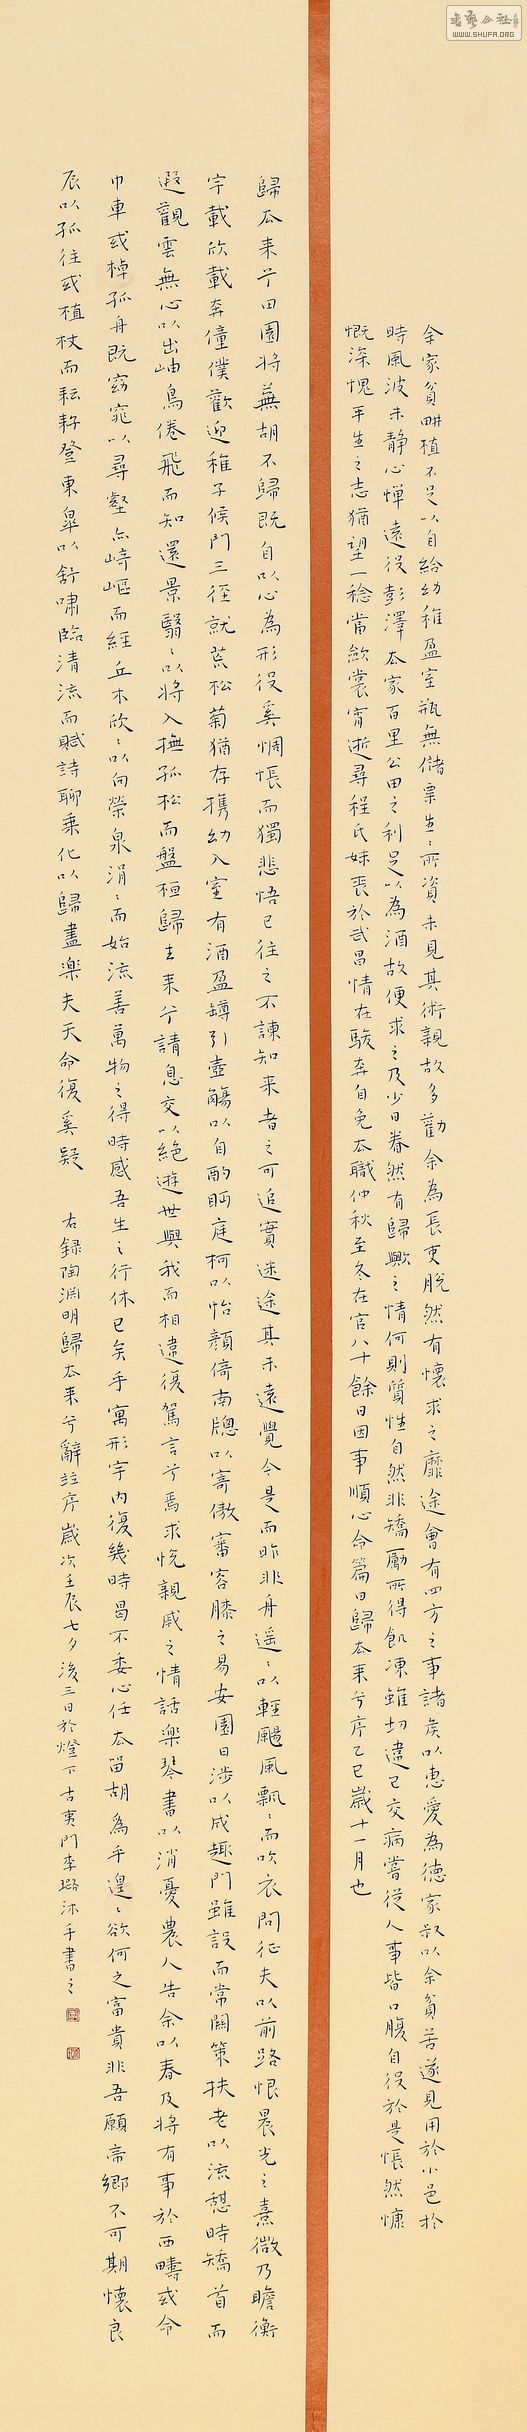 余家貧畊植不足以自給幼稚盈室瓶無儲粟生々所資未見其術親故多勸余為長吏脫然有懷求之靡途會有四方之事諸矦以惠愛為德家叔以余貧苦遂見用於小邑於
時風波未靜心憚遠役彭澤去家百里公田之利足以為酒故便求之及少日眷然有歸歟之情何則質性自然非矯厲所得飢凍雖切違己交病嘗從人事皆口腹自役於是悵然慷
慨深愧平生之志猶望一稔當斂裳宵逝尋程氏妹喪於武昌情在駿奔自免去職仲秋至冬在官八十餘日因事順心命篇曰歸去来兮序乙巳歲十一月也
歸去来兮田園將蕪胡不歸既自以心為形役奚惆悵而獨悲悟已往之不諫知来者之可追實迷途其未遠覺今是而昨非舟遥々以輕颺風飄々而吹衣問征夫以前路恨晨光之熹微乃瞻衡
宇載欣載奔僮僕歡迎稚子候門三徑就荒松菊猶存携幼入室有酒盈罇引壺觴以自酌眄庭柯以怡顏倚南牕以寄傲審容膝之易安園日涉以成趣門雖設而常關策扶老以流憩時矯首而
遐觀雲無心以出岫鳥倦飛而知還景翳々以將入撫孤松而盤桓歸去来兮請息交以絕遊世與我而相違復駕言兮焉求悅親戚之情話樂琴書以消憂農人告余以春及將有事於西疇或命
巾車或棹孤舟既窈窕以尋壑亦崎嶇而經丘木欣々以向榮泉涓々而始流善萬物之得時感吾生之行休已矣乎寓形宇内復幾時曷不委心任去留胡為乎遑々欲何之富貴非吾願帝鄉不可期懷良
辰以孤往或植杖而耘耔登東皋以舒嘯臨清流而賦詩聊乘化以歸盡樂夫天命復奚疑 右録陶淵明歸去来兮辭並序歲次壬辰七夕後三日於燈下古夷門李璐沐手書之
書藝公社
WWW.SHUFA.ORG